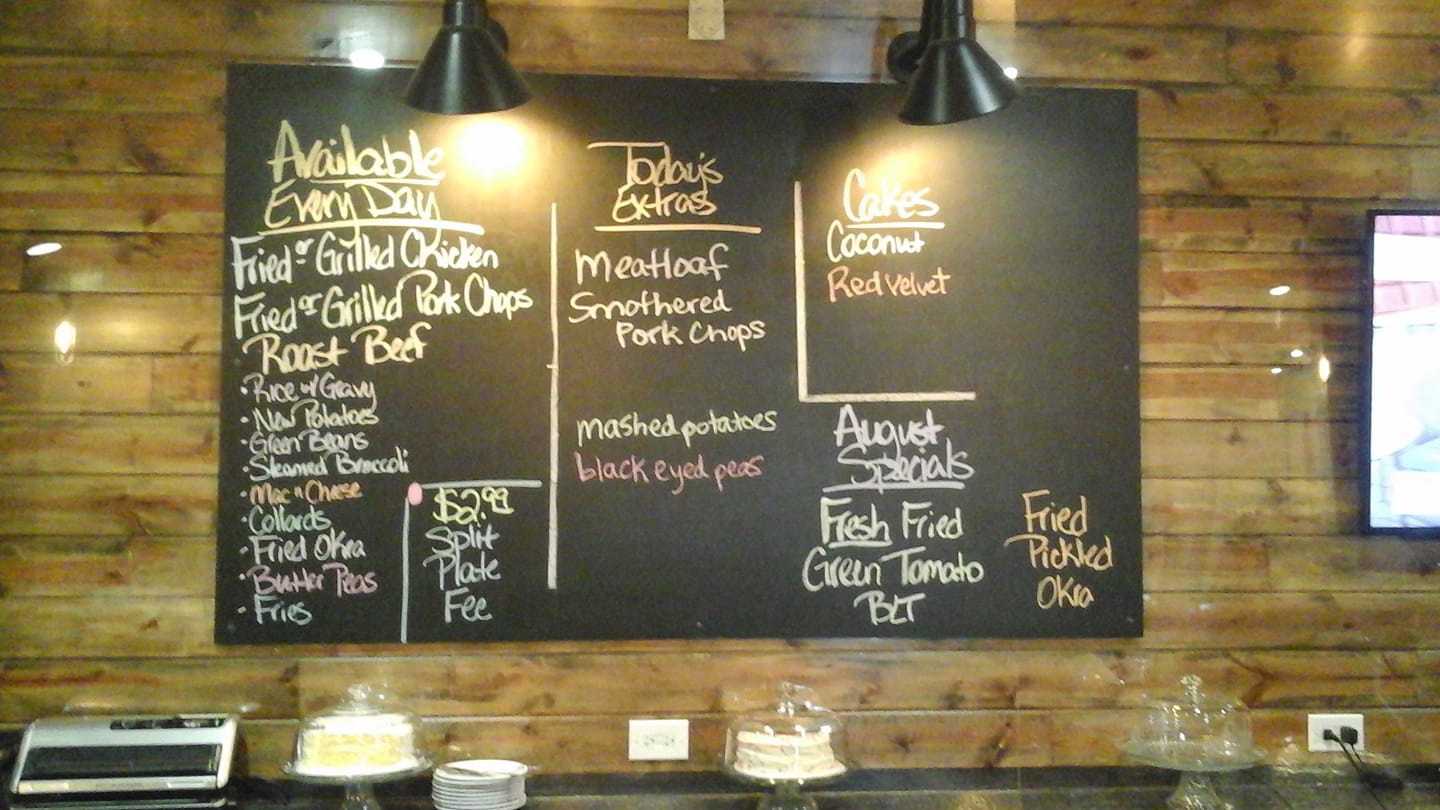 Available
Every Day
Fried or Grilled Chicken
Fried or Grilled Pork Chops
Roast Beef
• Rice w/ Gravy
• New Potatoes
• Green Beans
• Steamed Broccoli
• Mac n Cheese
• Collards
• Fried Okra
• Butter Peas
• Fries
$2.99
Split
Plate
Fee
Today's
Extras
Meatloaf
Smothered
Pork Chops
mashed potatoes
black eyed peas
Cakes
Coconut
Red velvet
August
Specials
Fresh Fried
Green Tomato
BLT
Fried
Pickled
Okra